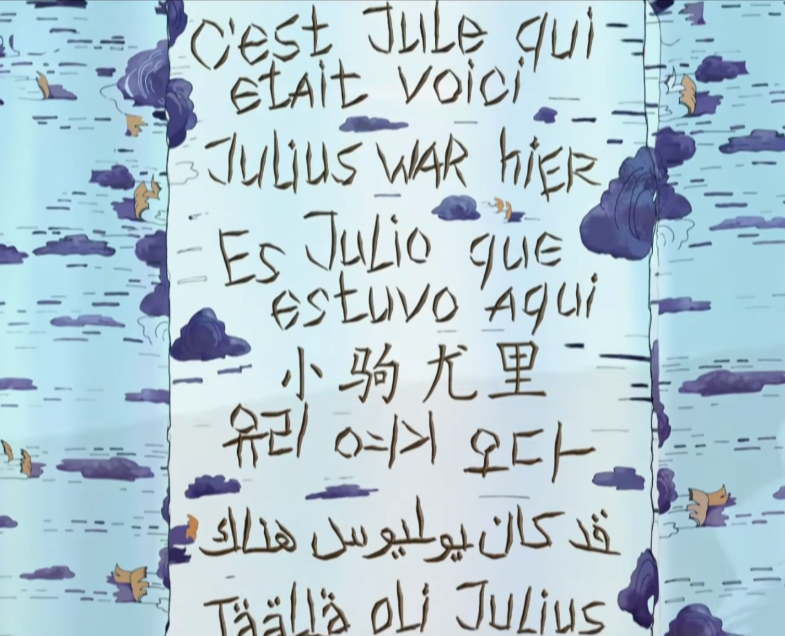 C'est Jule qui
etait voici
Julius war hier
Es Julio que
estuvo aqui
小驹尤里
유리 여기 오다
قد كان يوليوس هناك
Täällä oli Julius